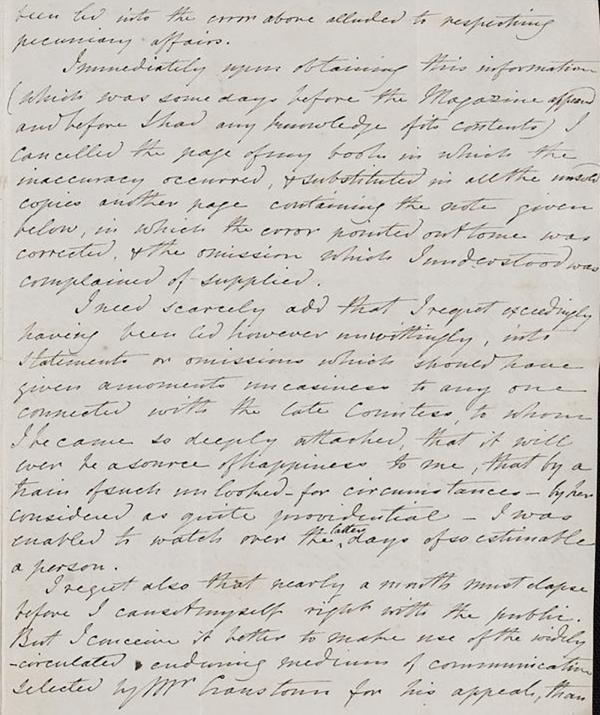 been led into the error above alluded to respecting
pecuniary affairs.
Immediately upon obtaining this information
(which was some days before the Magazine appeared
and before I had any knowledge of its contents) I
cancelled the page of my book in which the
inaccuracy occurred, & substituted in all the unsold
copies another page containing the note given
below, in which the error pointed out to me was
corrected, & the omission which I understood was
complained of supplied.
I need scarcely add that I regret exceedingly
having been led however unwittingly, into
statements or omissions which should have
given a moments uneasiness to any one
connected with the late Countess, to whom
I became so deeply attached, that it will
ever be a source of happiness to me, that by a
train of such unlooked-for circumstances - by her
considered as quite providential - I was
enabled to watch over the latter days of so estimable
a person.
I regret also that nearly a month must elapse
before I can set myself right with the public.
But I conceive it better to make use of the widely
-circulated enduring medium of communication
selected by Mr Cranstoun for his appeal, than